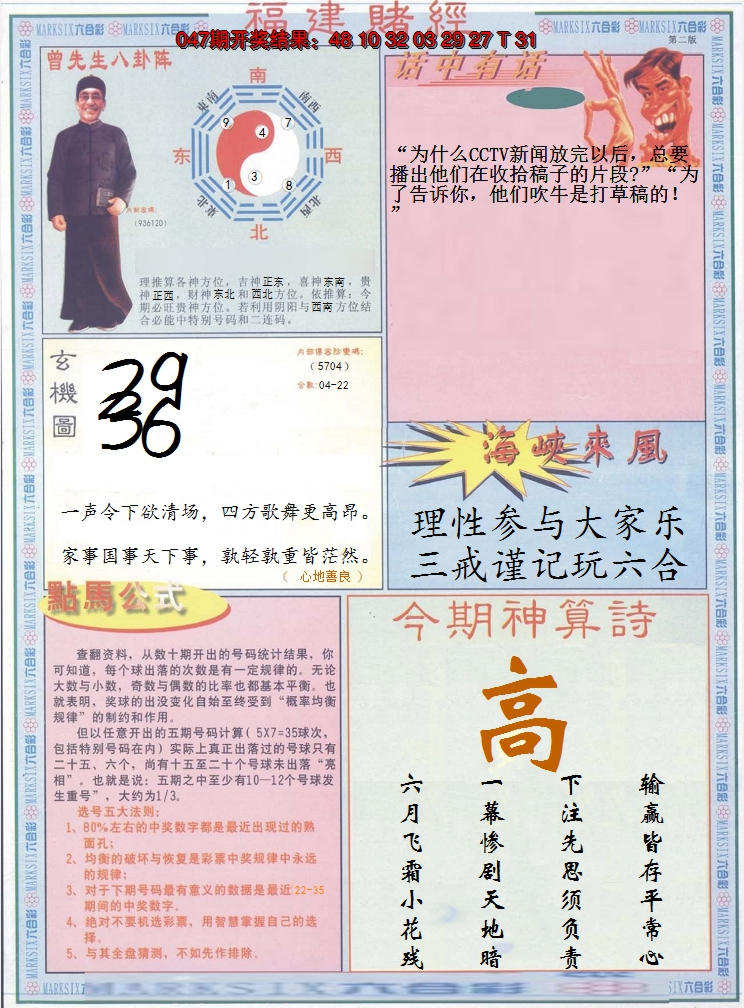 福建賭經
047期开奖结果：48 10 32 03 29 27 T 31
第二版
MARKSIX六合彩
曾先生八卦阵
南
東南
南西
9
4
7
东
西
1
3
8
東北
北西
北
内部密碼：
（936120）
理推算各神方位，吉神正东，喜神东南，贵
神正西，财神东北和西北方位。依推算：今
期必旺贵神方位。若利用阴阳与西南方位结
合必能中特别号码和二连码。
话中有话
“为什么CCTV新闻放完以后，总要
播出他们在收拾稿子的片段?”“为
了告诉你，他们吹牛是打草稿的！
”
玄機圖
29
36
（5704）
合数:04-22
一声令下欲清场，四方歌舞更高昂。
家事国事天下事，孰轻孰重皆茫然。
（ 心地善良 ）
海峡來风
理性参与大家乐
三戒谨记玩六合
點馬公式
查翻资料，从数十期开出的号码统计结果，你
可知道，每个球出落的次数是有一定规律的。无论
大数与小数，奇数与偶数的比率也都基本平衡。也
就表明，奖球的出没变化自始至终受到“概率均衡
规律”的制约和作用。
但以任意开出的五期号码计算( 5X7=35球次，
包括特别号码在内）实际上真正出落过的号球只有
二十五、六个，尚有十五至二十个号球未出落“亮
相”。也就是说：五期之中至少有10—12个号球发
生重号”，大约为1/3。
选号五大法则：
1、80%左右的中奖数字都是最近出现过的熟
面孔；
2、均衡的破坏与恢复是彩票中奖规律中永远
的规律；
3、对于下期号码最有意义的数据是最近22-35
期间的中奖数字。
4、绝对不要机选彩票，用智慧掌握自己的选
择。
5、与其全盘猜测，不如先作排除。
今期神算詩
高
六月飞霜小花残
一幕惨剧天地暗
下注先思须负责
输赢皆存平常心